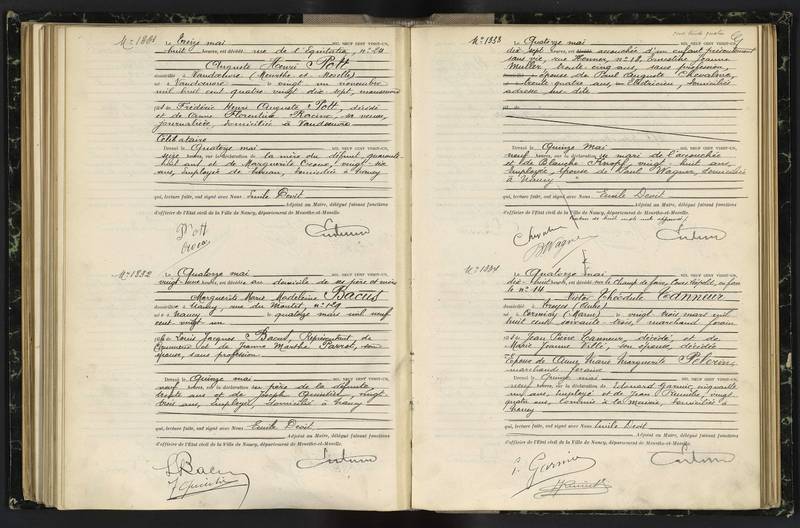 N° 1881 Le treize mai MIL NEUF CENT VINGT-UN,
huit heures, est décédé rue de l'Equitation, n° 24
Auguste Henri Pott
domicilié à Vandœuvre (Meurthe et Moselle)
né à Vandœuvre le vingt un novembre
mil huit cent quatre vingt dix sept, manœuvre
fils de Frédéric Henri Auguste Pott, décédé
et de Anne Florentine Racine, sa veuve,
journalière, domiciliée à Vandœuvre
Célibataire
Dressé le Quatorze mai MIL NEUF CENT VINGT-UN,
seize heures, sur la déclaration de la mère du défunt, quarante
huit ans et de Marguerite vingt six
ans, employée de bureau, domiciliée à Nancy
qui, lecture faite, ont signé avec Nous Emile Devit
Adjoint au Maire, délégué faisant fonctions
d'officier de l'Etat civil de la Ville de Nancy, département de Meurthe-et-Moselle.
N° 1882 Le Quatorze mai MIL NEUF CENT VINGT-UN,
vingt heures, est décédée au domicile de ses père et mère
Marguerite Marie Madeleine Bacus
domiciliée à Nancy, rue du Montet, n° 129
née à Nancy le quatorze mai mil neuf
cent vingt un
fille de Louis Jacques Bacus, Représentant de
Commerce et de Jeanne Marthe Parrot, son
épouse, sans profession
Dressé le Quinze mai MIL NEUF CENT VINGT-UN,
neuf heures, sur la déclaration du père de la défunte,
trente ans et de Joseph Quintlier, vingt
trois ans, Employé, domiciliés à Nancy
qui, lecture faite, ont signé avec Nous Emile Devit
Adjoint au Maire, délégué faisant fonctions
d'officier de l'Etat civil de la Ville de Nancy, département de Meurthe-et-Moselle.
N° 1883 Le Quatorze mai MIL NEUF CENT VINGT-UN,
dix sept heures, est accouchée d'un enfant présenté
sans vie, rue n° 18, Ernestine Jeanne
Muller, trente cinq ans, sans profession,
épouse de Paul Auguste Chevalme,
trente quatre ans, Electricien, domiciliés
adresse sus dite
Dressé le Quinze Mai MIL NEUF CENT VINGT-UN,
neuf heures, sur la déclaration du mari de l'accouchée
et de Blanche vingt huit ans,
Employée, épouse de Paul Wagner, domiciliée
à Nancy
qui, lecture faite, ont signé avec Nous Emile Devit
Adjoint au Maire, délégué faisant fonctions
d'officier de l'Etat civil de la Ville de Nancy, département de Meurthe-et-Moselle.
N° 1884 Le Quatorze mai MIL NEUF CENT VINGT-UN,
dix-huit heures, est décédé sur le Champ de foire, Cours Léopold,
n° 14 Victor Théodule Tanneur
domicilié à Troyes (Aube)
né à Cormicy (Marne) le vingt trois mars mil
huit cent soixante trois, marchand forain
fils de Jean Pierre Tanneur décédé, et de
Marie Jeanne son épouse, décédée
Epoux de Anne Marie Marguerite Pelerin,
marchande foraine
Dressé le Quinze mai MIL NEUF CENT VINGT-UN,
neuf heures, sur la déclaration de Edouard Garnier, cinquante
un ans, Employé et de Jean vingt
quatre ans, Commis à la Mairie, domiciliés à
Nancy
qui, lecture faite, ont signé avec Nous Emile Devit
Adjoint au Maire, délégué faisant fonctions
d'officier de l'Etat civil de la Ville de Nancy, département de Meurthe-et-Moselle.